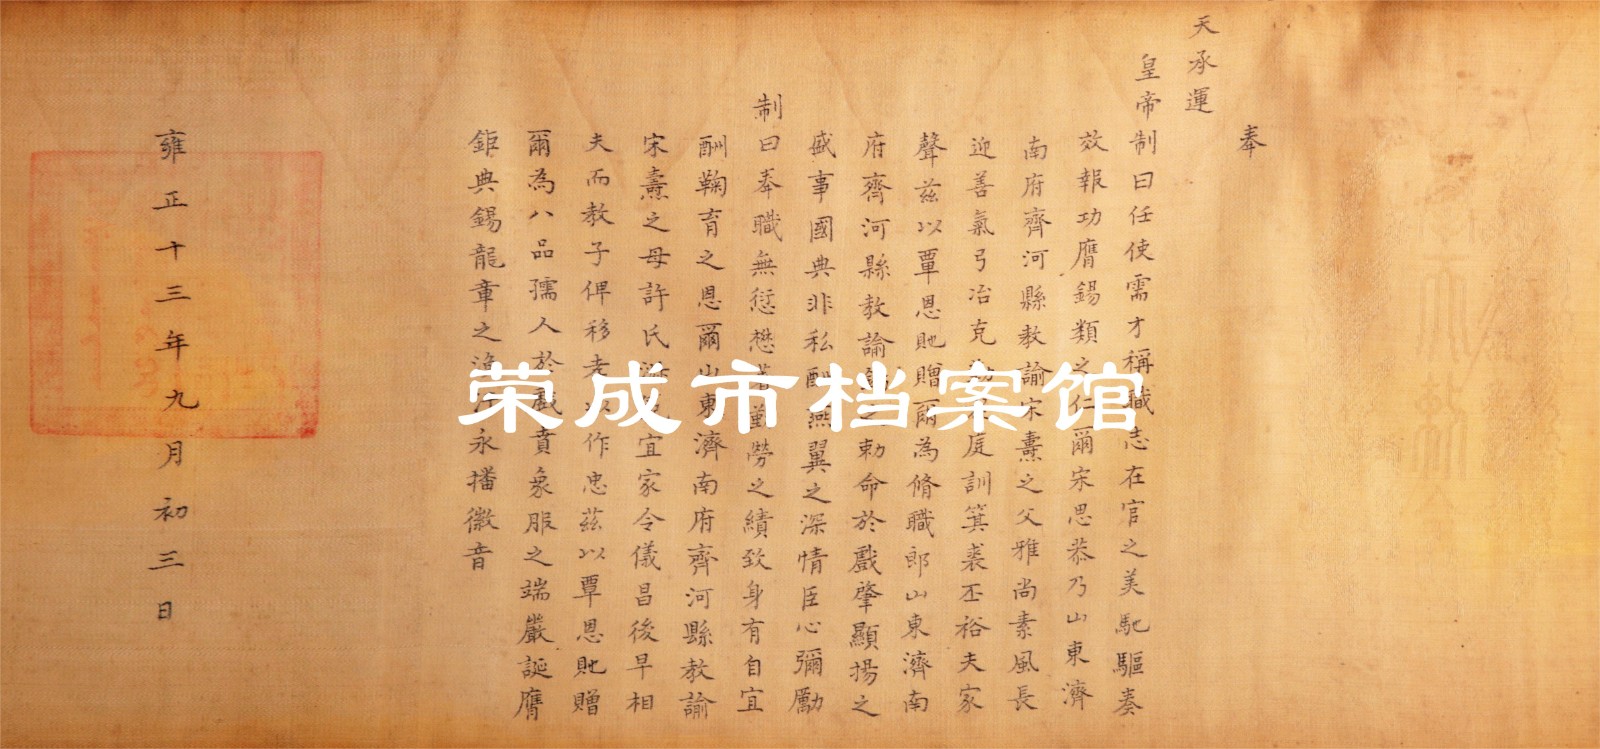 奉
天承運
皇帝制曰任使需才稱職志在官之美馳驅奏
效報功膺錫類之仁爾宋思恭乃山東濟
南府齊河縣教諭宋燾之父雅尚素風長
迎善氣弓冶克庭訓箕裘丕裕夫家
聲茲以覃恩貤贈爾為脩職郎山東濟南
府齊河縣教諭之勅命於戲肇顯揚之
盛事國典非私酬燕翼之深情臣心彌勵
制曰奉職無愆懋著勤勞之績致身有自宜
酬鞠育之恩爾山東濟南府齊河縣教諭
宋燾之母許氏宜家令儀昌後早相
夫而教子俾移孝以作忠茲以覃恩貤贈
爾為八品孺人於戲賁象服之端嚴誕膺
鉅典錫龍章之渙永播徽音
雍正十三年九月初三日
荣成市档案馆